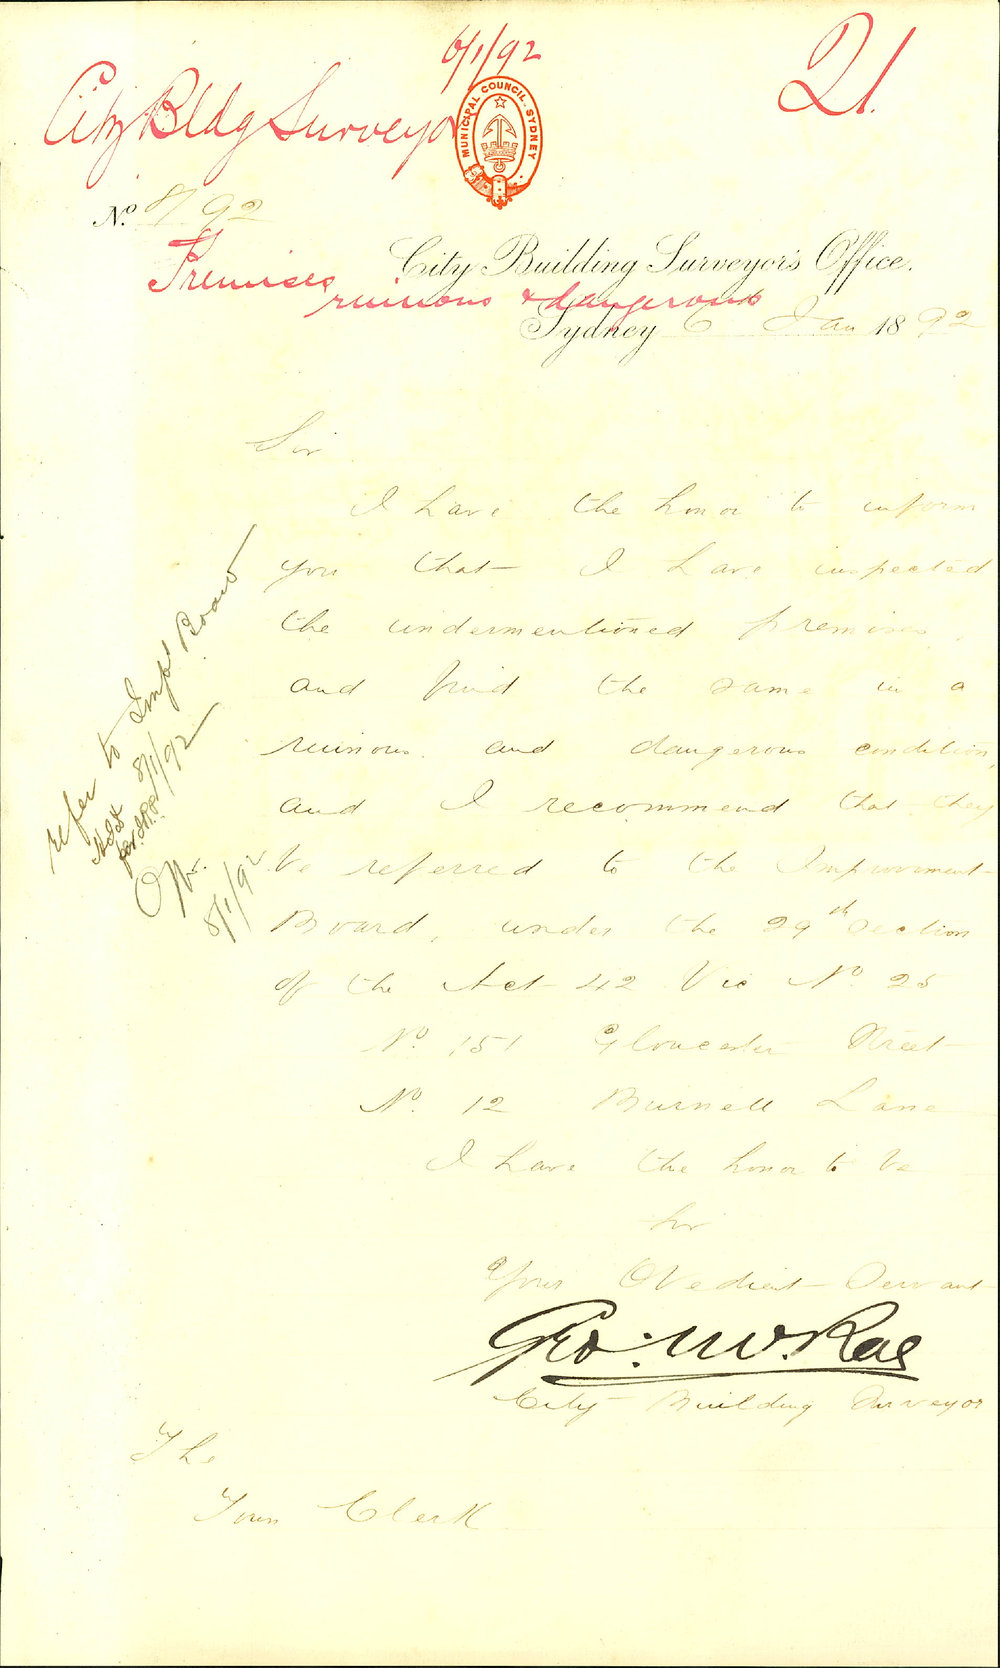 6/1/92
21.
City Bldg Surveyor
MUNICIPAL COUNCIL. SYDNEY
No. 8/92
Premises
ruinous & dangerous
City Building Surveyor's Office.
Sydney 6 Jan 1892
Sir
I have the honor to inform
you that I have inspected
the undermentioned premises,
and find the same in a
ruinous and dangerous condition,
and I recommend that they
be referred to the Improvement
Board, under the 29th Section
of the Act 42 Vic No. 25
No. 151 Gloucester Street
No. 12 Burnell Lane
I have the honor to be
Sir
Your Obedient Servant
Geo: McRae
City Building Surveyor
The
Town Clerk
refer to Impt Board
8/1/92
8/1/92